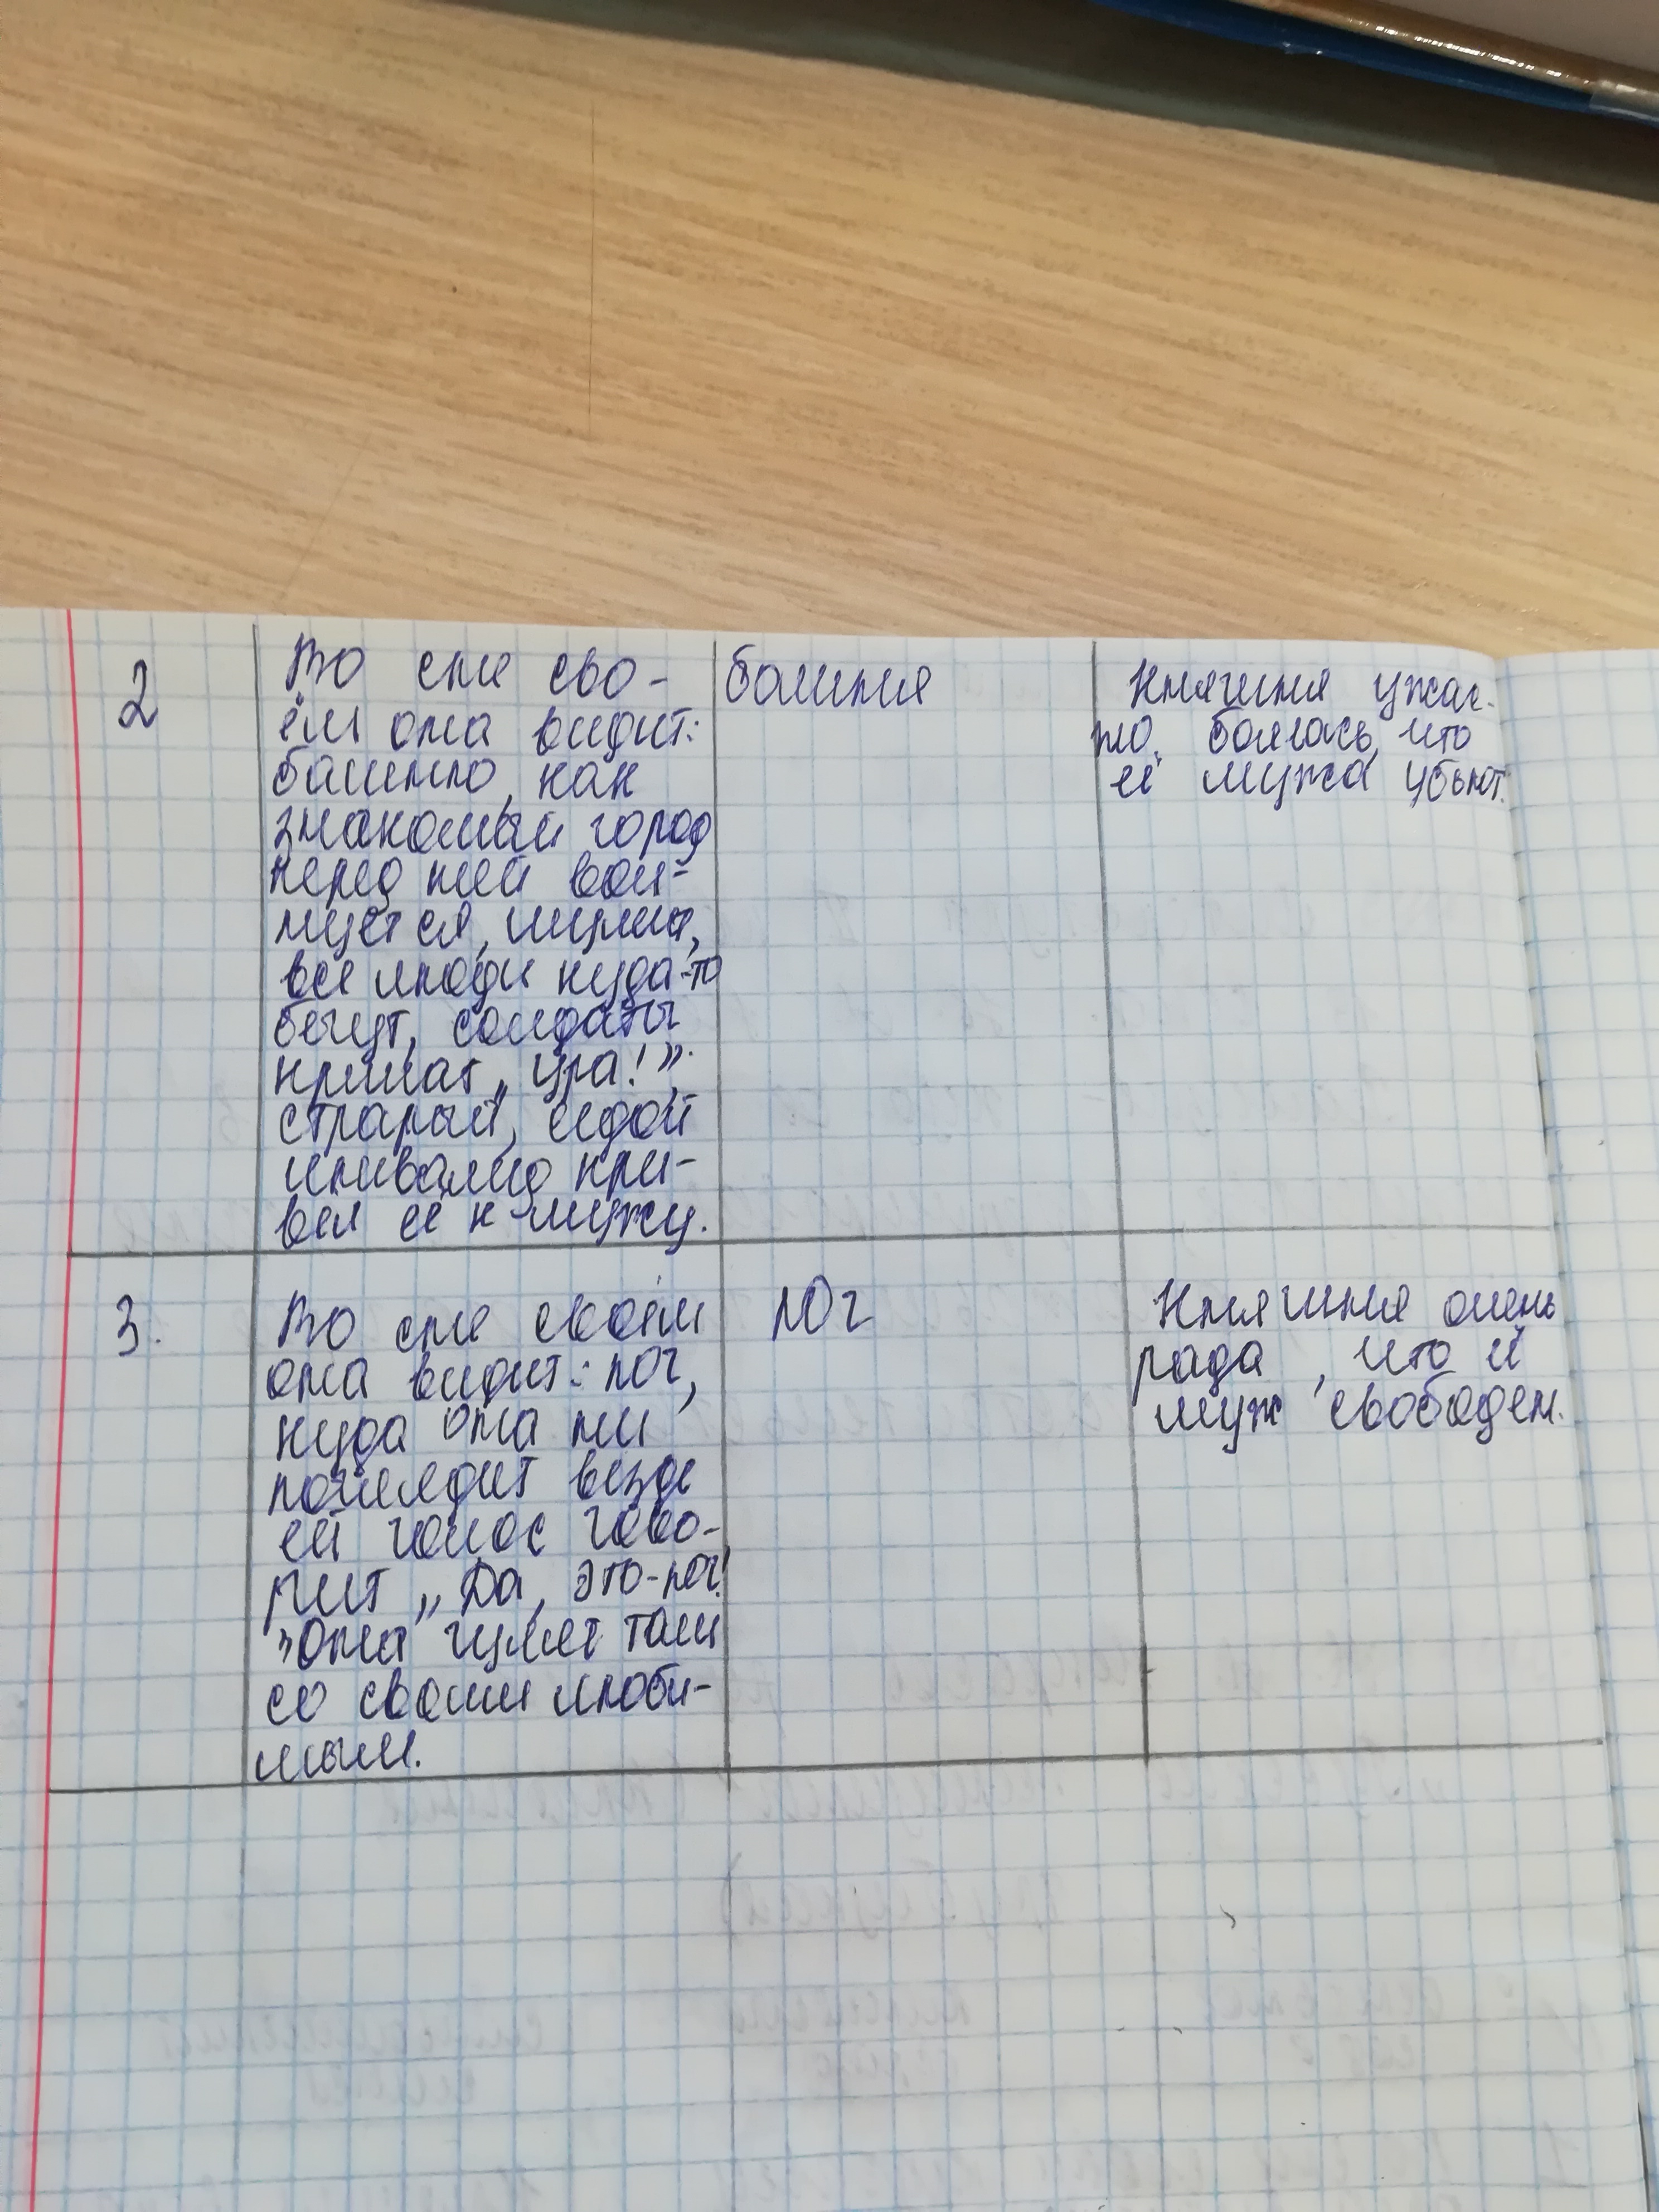 2
Во сне сво-
ём она видит:
башню, как
знакомый город
перед ней вол-
нуется, шумит,
все люди куда-то
бегут, солдаты
кричат „ура!”,
старый, седой
инвалид при-
вёл её к мужу.
башня
Княгиня ужас-
но боялась, что
её мужа убьют.
3.
Во сне своём
она видит: юг,
куда она ни
поглядит везде
ей голос гово-
рит „Да, это-юг!
”Она гуляет там
со своим люби-
мым.
юг
Княгиня очень
рада, что её
муж свободен.